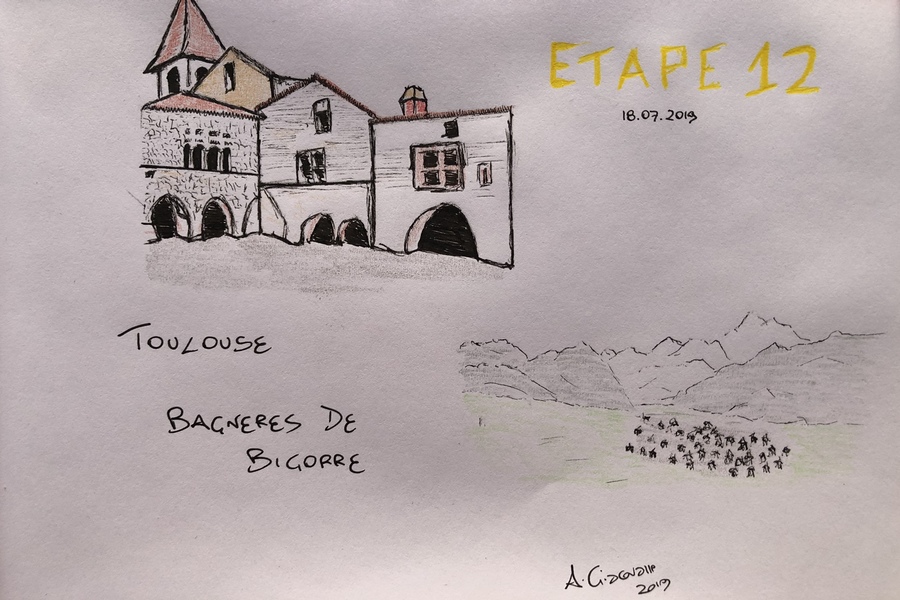 ETAPE 12
18.07.2019
TOULOUSE
BAGNERES DE
BIGORRE
A.
2019